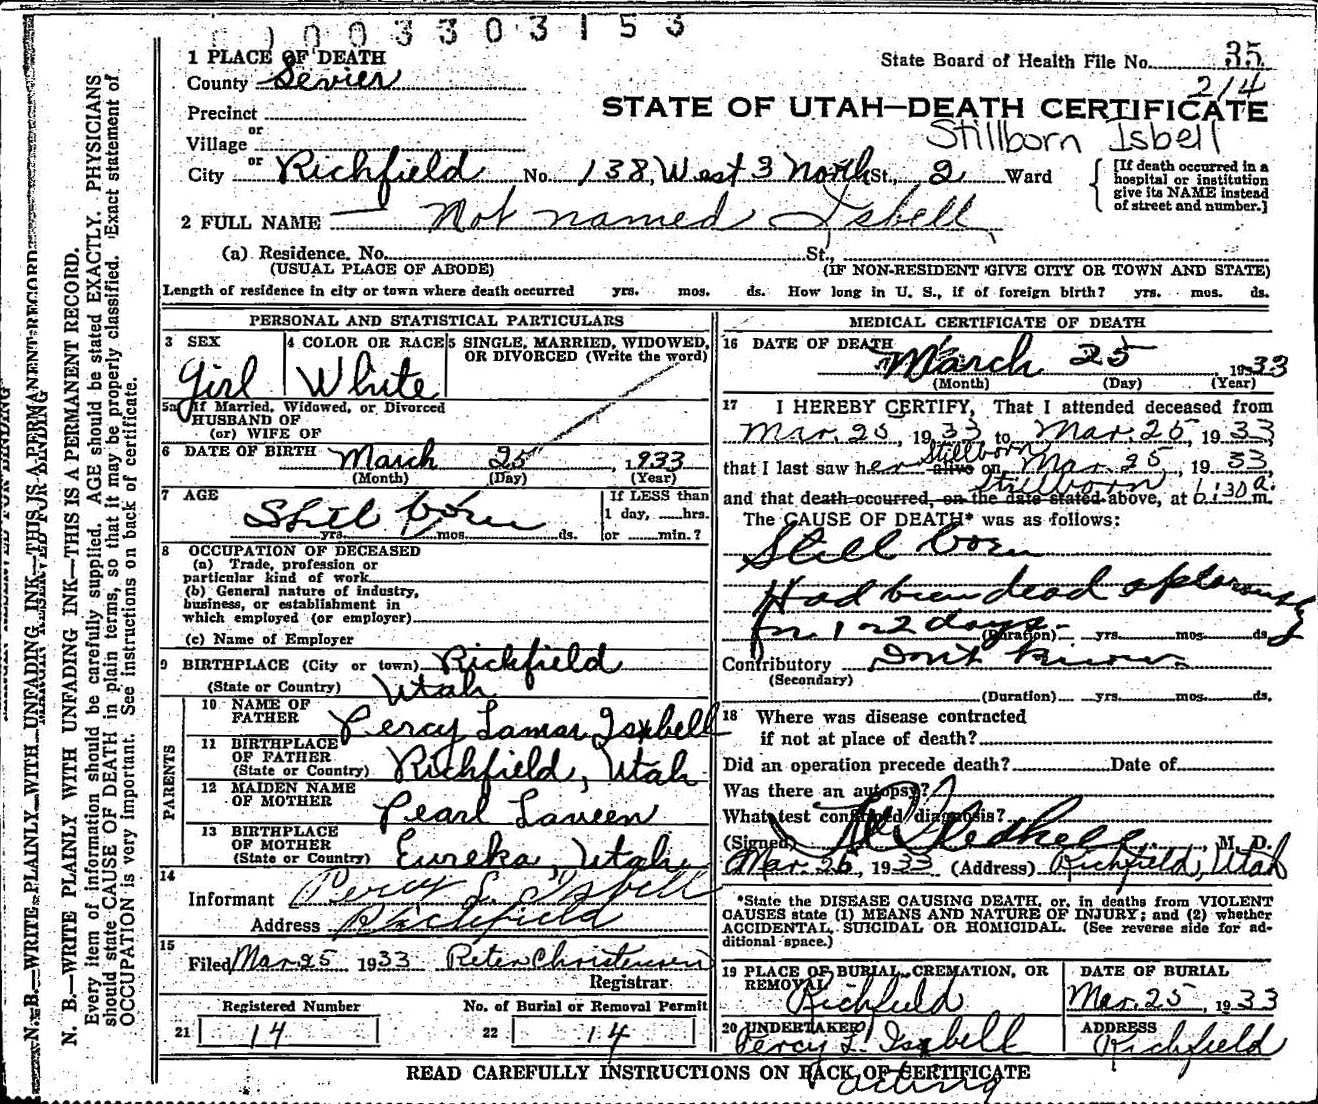 0 0 3 3 0 3 1 5 3
1 PLACE OF DEATH
County Sevier
State Board of Health File No. 35
214
Precinct
STATE OF UTAH—DEATH CERTIFICATE
or
Village
Stillborn Isbell
or
City Richfield No. 138, West 3 North St., 2 Ward
[If death occurred in a hospital or institution give its NAME instead of street and number.]
2 FULL NAME Not named Isbell
(a) Residence. No. St.,
(USUAL PLACE OF ABODE) (IF NON-RESIDENT GIVE CITY OR TOWN AND STATE)
Length of residence in city or town where death occurred yrs. mos. ds. How long in U. S., if of foreign birth? yrs. mos. ds.
PERSONAL AND STATISTICAL PARTICULARS
3 SEX 4 COLOR OR RACE 5 SINGLE, MARRIED, WIDOWED,
OR DIVORCED (Write the word)
Girl White
5a If Married, Widowed, or Divorced
HUSBAND OF
(or) WIFE OF
6 DATE OF BIRTH March 25, 1933
(Month) (Day) (Year)
7 AGE If LESS than
Still born 1 day, hrs.
yrs. mos. ds. or min.?
8 OCCUPATION OF DECEASED
(a) Trade, profession or
particular kind of work
(b) General nature of industry,
business, or establishment in
which employed (or employer)
(c) Name of Employer
9 BIRTHPLACE (City or town) Richfield
(State or Country) Utah
PARENTS
10 NAME OF
FATHER Percy Lamar Isbell
11 BIRTHPLACE
OF FATHER
(State or Country) Richfield, Utah
12 MAIDEN NAME
OF MOTHER Pearl Laveen
13 BIRTHPLACE
OF MOTHER
(State or Country) Eureka, Utah
14
Informant Percy L. Isbell
Address Richfield
15
Filed Mar 25 1933 Peter Christensen
Registrar
Registered Number No. of Burial or Removal Permit
21 14 22 14
MEDICAL CERTIFICATE OF DEATH
16 DATE OF DEATH
March 25 1933
(Month) (Day) (Year)
17 I HEREBY CERTIFY, That I attended deceased from
Mar. 25, 1933 to Mar. 25, 1933
Stillborn
that I last saw her alive on Mar. 25, 1933,
Stillborn
and that death occurred, on the date stated above, at 6:30 a. m.
The CAUSE OF DEATH* was as follows:
Still born
Had been dead apparently
for 1 or 2 days.
(Duration) yrs. mos. ds.
Contributory Don't know
(Secondary)
(Duration) yrs. mos. ds.
18 Where was disease contracted
if not at place of death?
Did an operation precede death? Date of
Was there an autopsy?
What test confirmed diagnosis?
(Signed) M. D.
Mar. 25, 1933 (Address) Richfield, Utah
*State the DISEASE CAUSING DEATH, or, in deaths from VIOLENT
CAUSES state (1) MEANS AND NATURE OF INJURY; and (2) whether
ACCIDENTAL, SUICIDAL OR HOMICIDAL. (See reverse side for ad-
ditional space.)
19 PLACE OF BURIAL, CREMATION, OR
REMOVAL
Richfield
DATE OF BURIAL
Mar. 25, 1933
20 UNDERTAKER
Percy L. Isbell
acting
ADDRESS
Richfield
READ CAREFULLY INSTRUCTIONS ON BACK OF CERTIFICATE
N. B.—WRITE PLAINLY WITH UNFADING INK—THIS IS A PERMANENT RECORD.
Every item of information should be carefully supplied. AGE should be stated EXACTLY. PHYSICIANS
should state CAUSE OF DEATH in plain terms, so that it may be properly classified. Exact statement of
OCCUPATION is very important. See instructions on back of certificate.